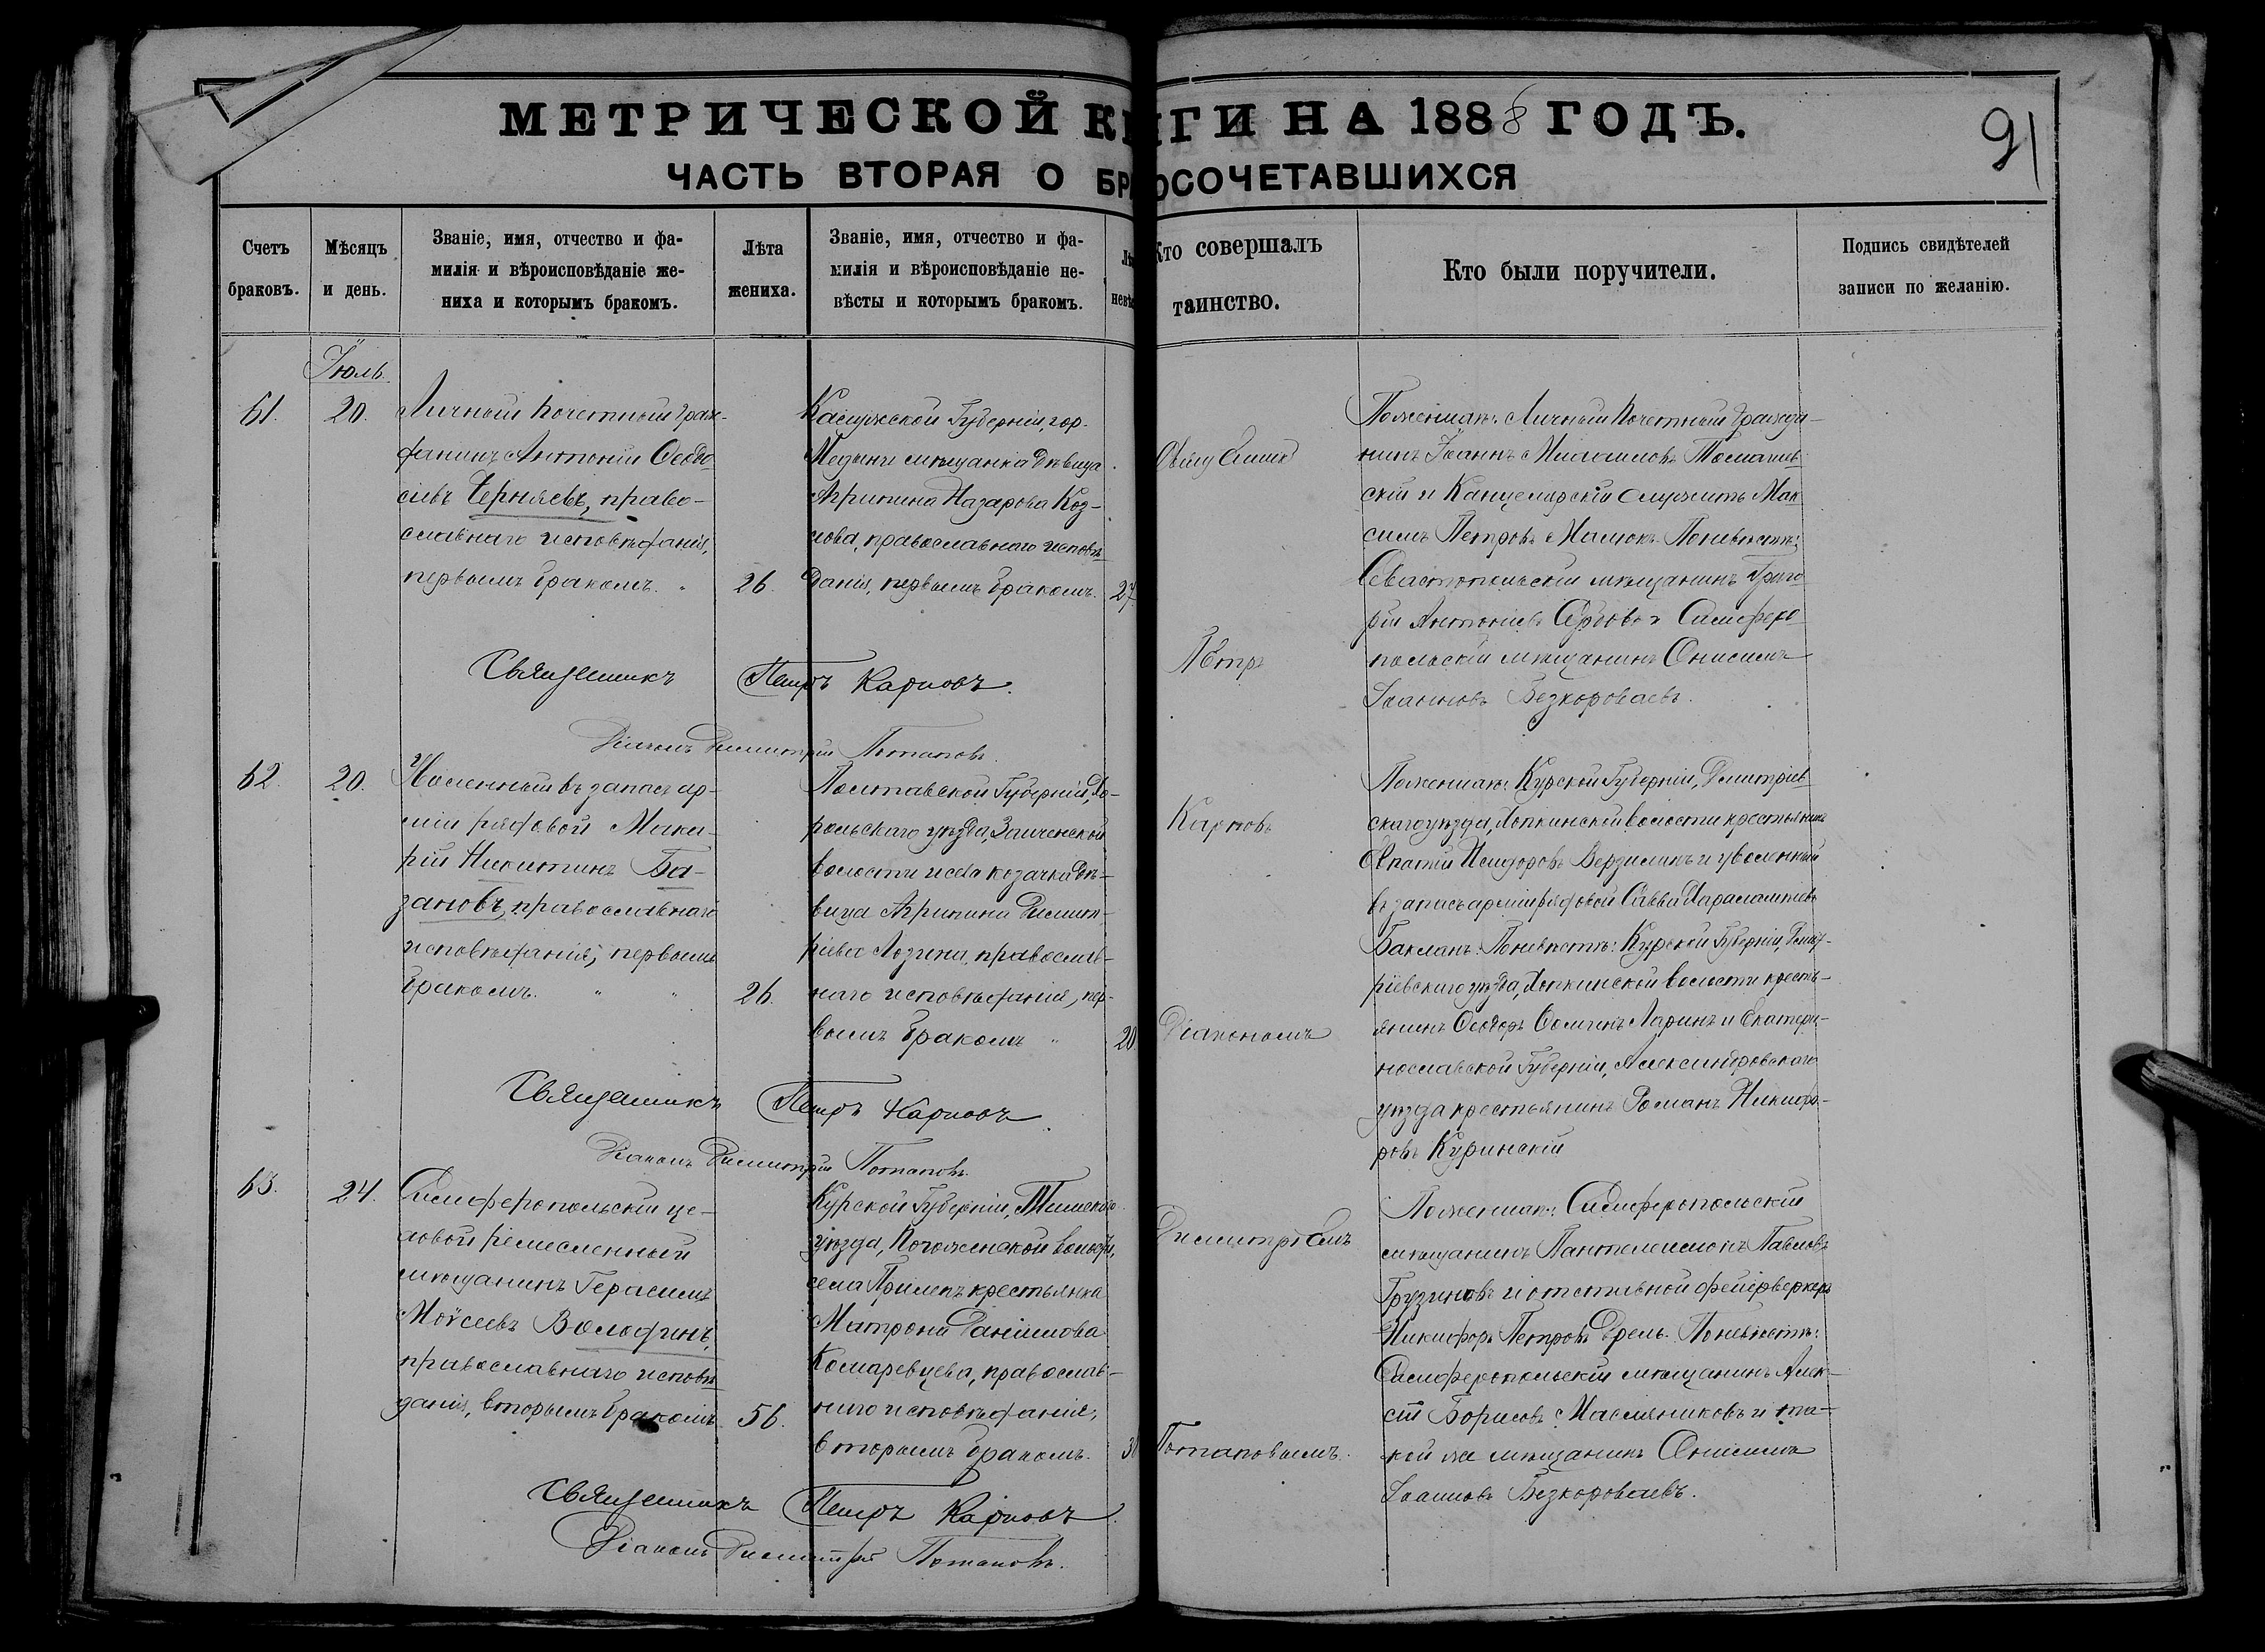 МЕТРИЧЕСКОЙ К ГИ НА 1888 ГОДЪ.
91
ЧАСТЬ ВТОРАЯ О БР ОСОЧЕТАВШИХСЯ
Счетъ браковъ.
Мѣсяцъ и день.
Званіе, имя, отчество и фа-
милія и вѣроисповѣданіе же-
ниха и которымъ бракомъ.
Лѣта жениха.
Званіе, имя, отчество и фа-
милія и вѣроисповѣданіе не-
вѣсты и которымъ бракомъ.
Кто совершалъ
таинство.
Кто были поручители.
Подпись свидѣтелей
записи по желанію.
Іюль
61.
20.
Личный Почетный Граж-
данинъ Антоній Ѳеодо
сіевъ Черняевъ, право-
славнаго исповѣданія,
первымъ бракомъ.
26.
Калужской Губерніи, гор.
Медыни мѣщанка дѣвица
Агрипина Назарова Коз-
лова, православнаго исповѣ
данія, первымъ бракомъ.
27
Поженихѣ: Личный Почетный Гражда-
нинъ Іоаннъ Михаиловъ
скій и Канцелярскій служитель Мак
симъ Петровъ Малюкъ. Поневѣстѣ:
Севастопольскій мѣщанинъ Григо
рій Антоніевъ и Симферо
польскій мѣщанинъ Онисимъ
Іоанновъ Безкороваевъ.
Священникъ Петръ Карповъ.
Діаконъ Димитрій Потаповъ.
62.
20.
Уволенный въ запасъ ар-
міи рядовой Мака-
рій Никитинъ Ба-
зановъ, православнаго
исповѣданія, первымъ
бракомъ.
26.
Полтавской Губерніи, Хо-
рольскаго уѣзда,
волости и села козачка дѣ-
вица Агрипина Димит-
ріева Лозина, православ-
наго исповѣданія, пер-
вымъ бракомъ
20.
Поженихѣ: Курской Губерніи, Дмитріев
скагоуѣзда, волости крестьянинъ
Исидоровъ и уволенный
въ запасъ арміи рядовой Савва Харалампіевъ
Бакланъ: Поневѣстѣ: Курской Губерніи, Дмит-
ріевскаго уѣзда, волости кресть-
янинъ Ѳеодоръ Ларинъ и Екатери-
нославской Губерніи, Александровскаго
уѣзда крестьянинъ Романъ Никифо-
ровъ Куринскій
Священникъ Петръ Карповъ.
Діаконъ Димитрій Потаповъ.
63.
24.
Симферопольскій це-
ховой ремесленный
мѣщанинъ Герасимъ
Моѵсеевъ Володинъ,
православнаго исповѣ
данія, вторымъ бракомъ
56.
Курской Губерніи, Тимскаго
уѣзда, волости,
села крестьянка
Матрона Даніилова
Комаревцева, православ-
наго исповѣданія,
вторымъ бракомъ.
Петръ
Карповъ
Діакономъ
Димитріемъ
Потаповымъ.
Поженихѣ: Симферопольскій
мѣщанинъ Пантелеимонъ Павловъ
Грузиновъ и отставной фейерверкеръ
Никифоръ Петровъ Поневѣстѣ:
Симферопольскій мѣщанинъ Алек-
сій Борисовъ Масляниковъ и та-
кой же мѣщанинъ Онисимъ
Іоанновъ Безкороваевъ.
Священникъ Петръ Карповъ.
Діаконъ Димитрій Потаповъ.